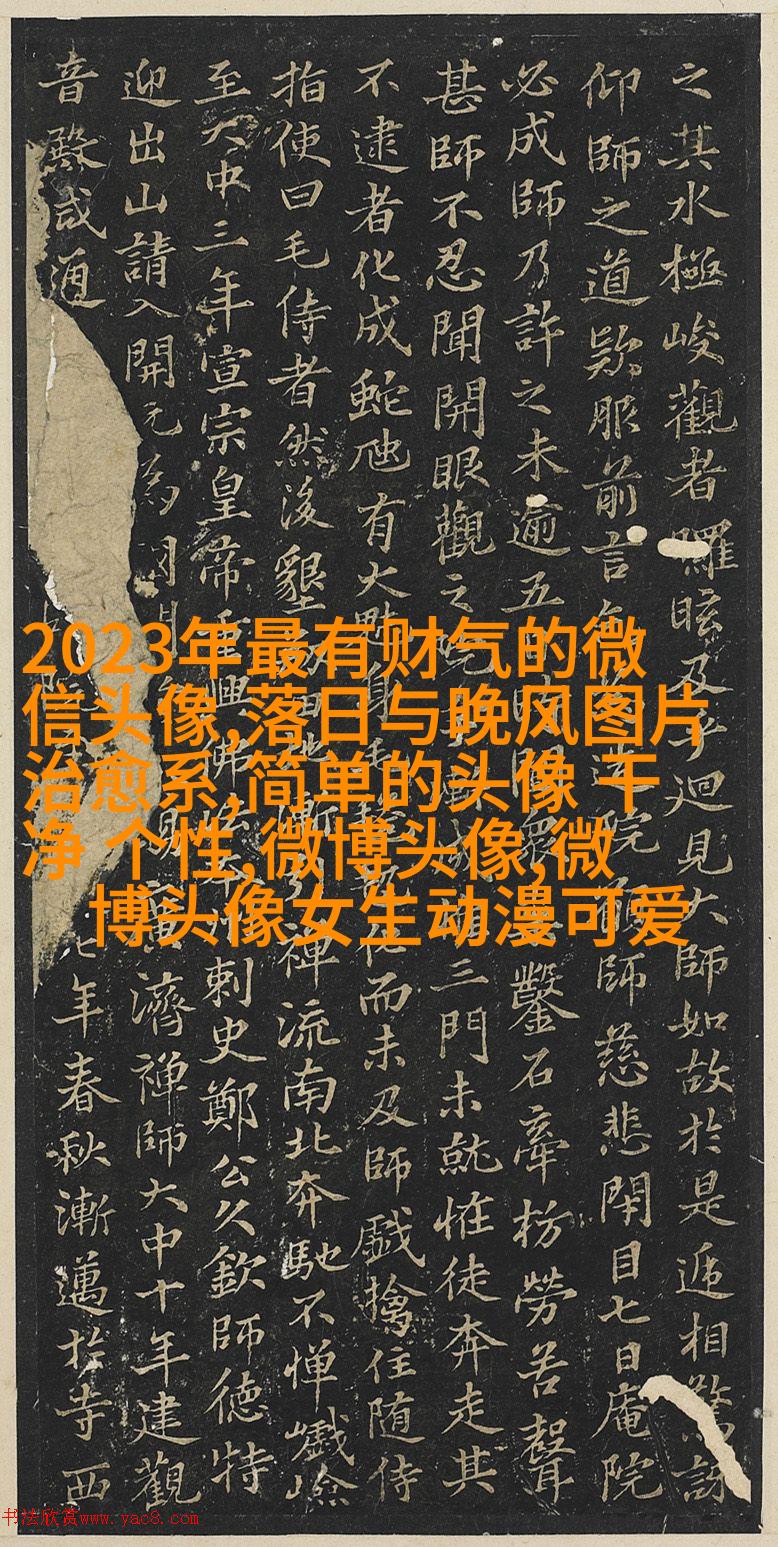 之其水極峻觀者矅眩及乎迴見大師如故於是遞相驚訝
仰師之道歎服前言 造院 師慈悲閑目七日庵院
必成師乃許之未逾五 鑿石牽枋勞苦聲
甚師不忍聞開眼觀之 三門未就惟徒奔走其
不逮者化成蛇虺有大 而未及師戲擒住随侍
指使曰毛侍者然後墾 禪流南北奔馳不憚巇嶮
至大中三年宣宗皇帝重興佛 刺史鄭公久欽師德特
迎出山請入開元為 賜 濟禪師大中十年建觀
音殿咸通 七年春秋漸邁於寺西
2023年最有财气的微
信头像,落日与晚风图片
治愈系,简单的头像 干
净 个性,微博头像,微
博头像女生动漫可爱
书法欣赏www.yac8.com